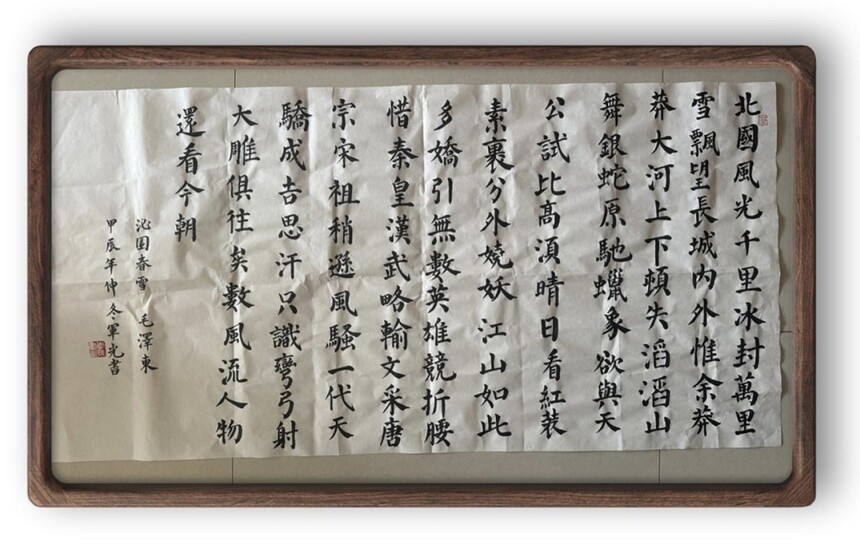 北國風光千里冰封萬里
雪飄望長城内外惟余莽
莽大河上下頓失滔滔山
舞銀蛇原馳蠟象欲與天
公試比髙須晴日看紅装
素裹分外嬈妖江山如此
多嬌引無數英雄競折腰
惜秦皇漢武略輸文采唐
宗宋祖稍遜風騷一代天
驕成吉思汗只識彎弓射
大雕俱往矣數風流人物
還看今朝
沁园春雪 毛澤東
甲辰年仲冬軍光書